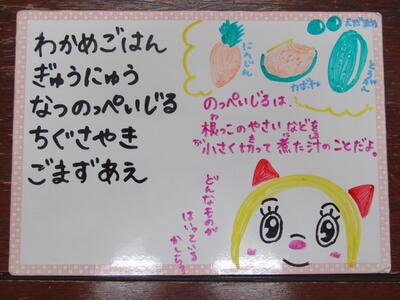 わかめごはん
ぎゅうにゅう
なつのっぺいじる
ちぐさやき
ごまずあえ
にんじん
かぼちゃ
えだまめ
とうがん
のっぺいじるは、
根っこのやさいなどを
小さく切って煮た汁のことだよ。
どんなものが
はいっている
かしら?